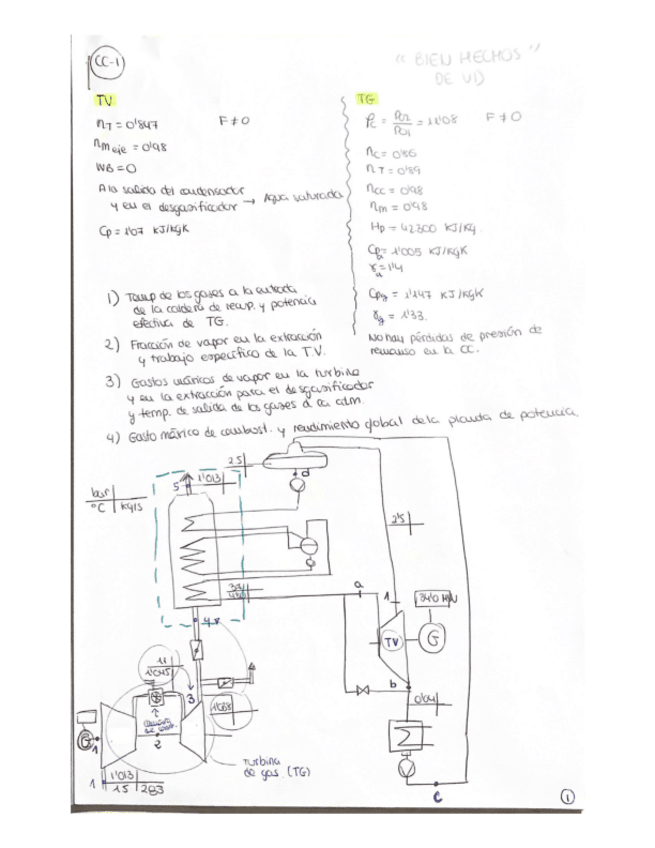 CC-1
" BIEN HECHOS "
DE VD
TV
ηT = 0'847 F ≠ 0
ηm eje = 0'98
WB = 0
A la salida del condensador
y en el desgasificador → Agua saturada
Cp = 1'07 KJ/KgK
TG
ρc = P02/P01 = 11'08 F ≠ 0
ηc = 0'86
ηT = 0'89
ηcc = 0'98
ηm = 0'98
Hp = 42300 KJ/Kg.
Cpa = 1'005 KJ/KgK
γa = 1'4
Cpg = 1'147 KJ/KgK
γg = 1'33.
No hay pérdidas de presión de
remanso en la CC.
1) Temp de los gases a la entrada
de la caldera de recup. y potencia
efectiva de TG.
2) Fracción de vapor en la extracción
y trabajo específico de la T.V.
3) Gastos másicos de vapor en la turbina
y en la extracción para el desgasificador
y temp. de salida de los gases a la atm.
4) Gasto másico de combust. y rendimiento global de la planta de potencia
bar
°C kg/s
2'5
d
5
1'013
2'5
a
1
TV
G
b
0'04
c
4
3
11
1'045
2
1'088
G
1
1
1'013
15 283
turbina
de gas. (TG)
1